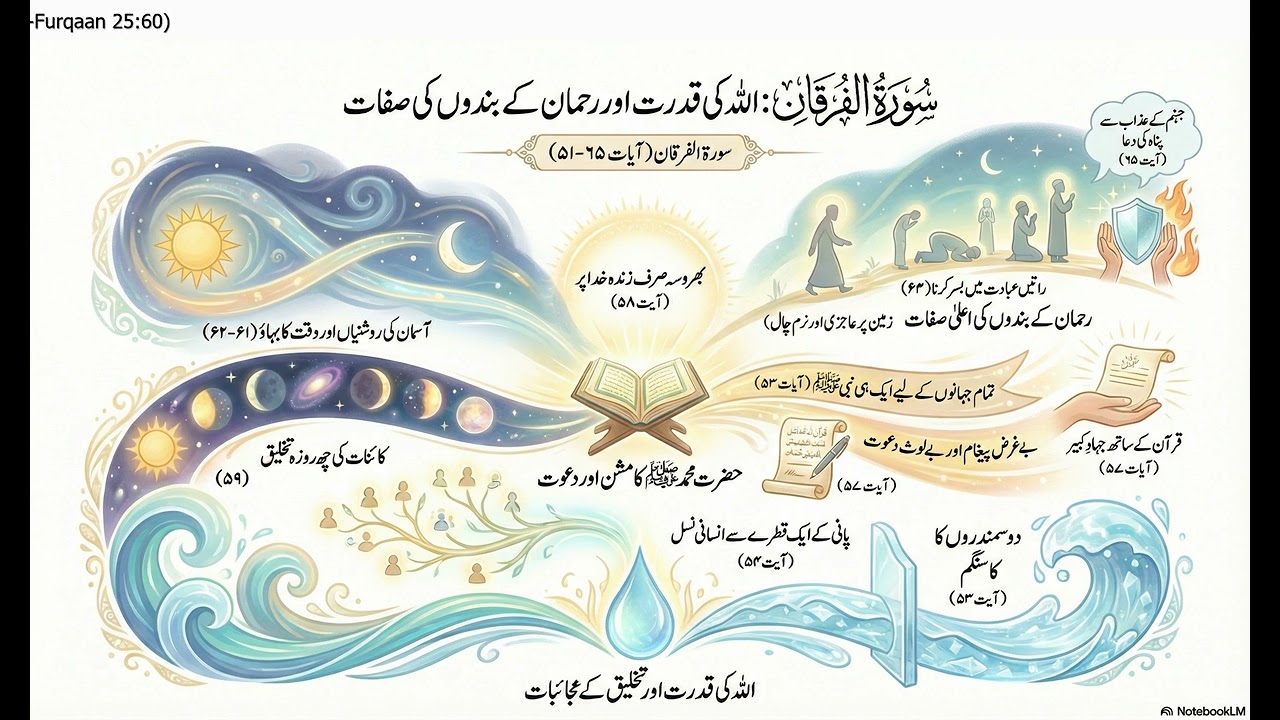 -Furqaan 25:60)
سُورَةُ الفُرقَانِ: اللہ کی قدرت اور رحمان کے بندوں کی صفات
سورۃ الفرقان (آیات ۶۵-۵۱)
جہنم کے عذاب سے
پناہ کی دعا
(آیت ۶۵)
بھروسہ صرف زندہ خدا پر
(آیت ۵۸)
راتیں عبادت میں بسر کرنا (۶۴)
رحمان کے بندوں کی اعلیٰ صفات
زمین پر عاجزی اور نرم چال)
آسمان کی روشنیاں اور وقت کا بہاؤ (۶۱-۶۲)
تمام جہانوں کے لیے ایک ہی نبی ﷺ (آیات ۵۳)
کائنات کی چھ روزہ تخلیق
(۵۹)
حضرت محمد ﷺ کا مشن اور دعوت
بے غرض پیغام اور بے لوث دعوت
(آیت ۵۷)
قرآن کے ساتھ جہادِ کبیر
(آیات ۵۷)
پانی کے ایک قطرے سے انسانی نسل
(آیت ۵۴)
دو سمندروں کا
کا سنگم
(آیت ۵۳)
اللہ کی قدرت اور تخلیق کے عجائبات
NotebookLM